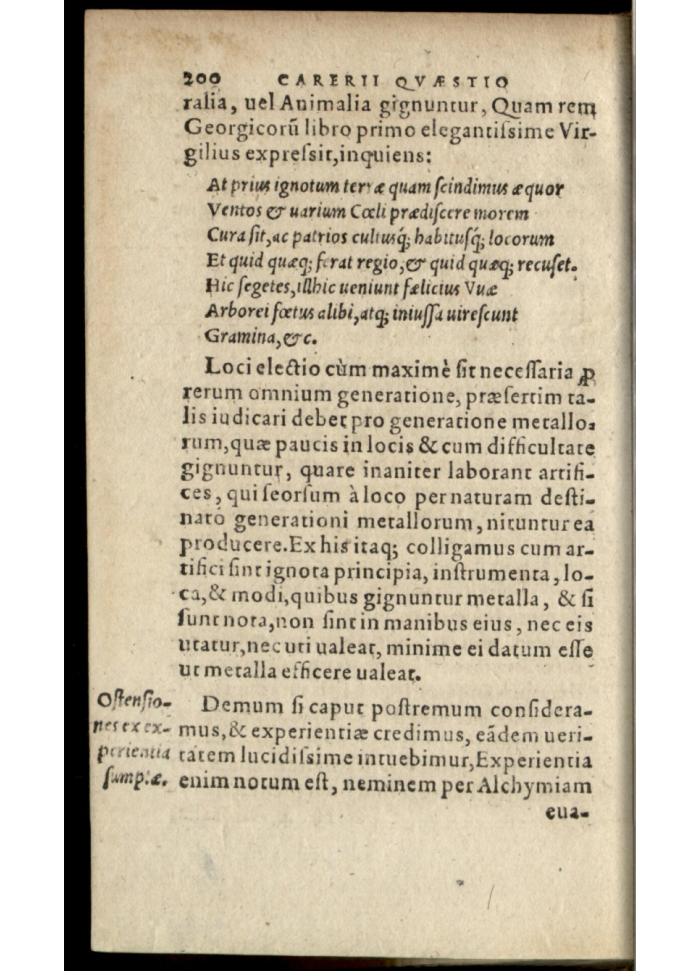 200 CARERII QVÆSTIO
ralia, uel Animalia gignuntur, Quam rem
Georgicorū libro primo elegantiſsime Vir-
gilius expreſsit, inquiens:
At prius ignotum terræ quam ſcindimus æquor
Ventos & uarium Cœli prædiſcere morem
Cura ſit, ac patrios cultusq́; habitusq́; locorum
Et quid quæq; ferat regio, & quid quæq; recuſet.
Hic ſegetes, illhic ueniunt fælicius Vuæ
Arborei fœtus alibi, atq; iniuſſa uireſcunt
Gramina, &c.
Loci electio cùm maximè ſit neceſſaria ꝓ
rerum omnium generatione, præſertim ta-
lis iudicari debet pro generatione metallo-
rum, quæ paucis in locis & cum difficultate
gignuntur, quare inaniter laborant artifi-
ces, qui ſeorſum à loco per naturam deſti-
nato generationi metallorum, nituntur ea
producere. Ex his itaq; colligamus cum ar-
tifici ſint ignota principia, inſtrumenta, lo-
ca, & modi, quibus gignuntur metalla, & ſi
ſunt nota, non ſint in manibus eius, nec eis
utatur, nec uti ualeat, minime ei datum eſſe
ut metalla efficere ualeat.
Oſtenſio-
nes ex ex-
perientia
ſumptæ.
Demum ſi caput poſtremum conſidera-
mus, & experientiæ credimus, eādem ueri-
tatem lucidiſsime intuebimur, Experientia
enim notum eſt, neminem per Alchymiam
eua-